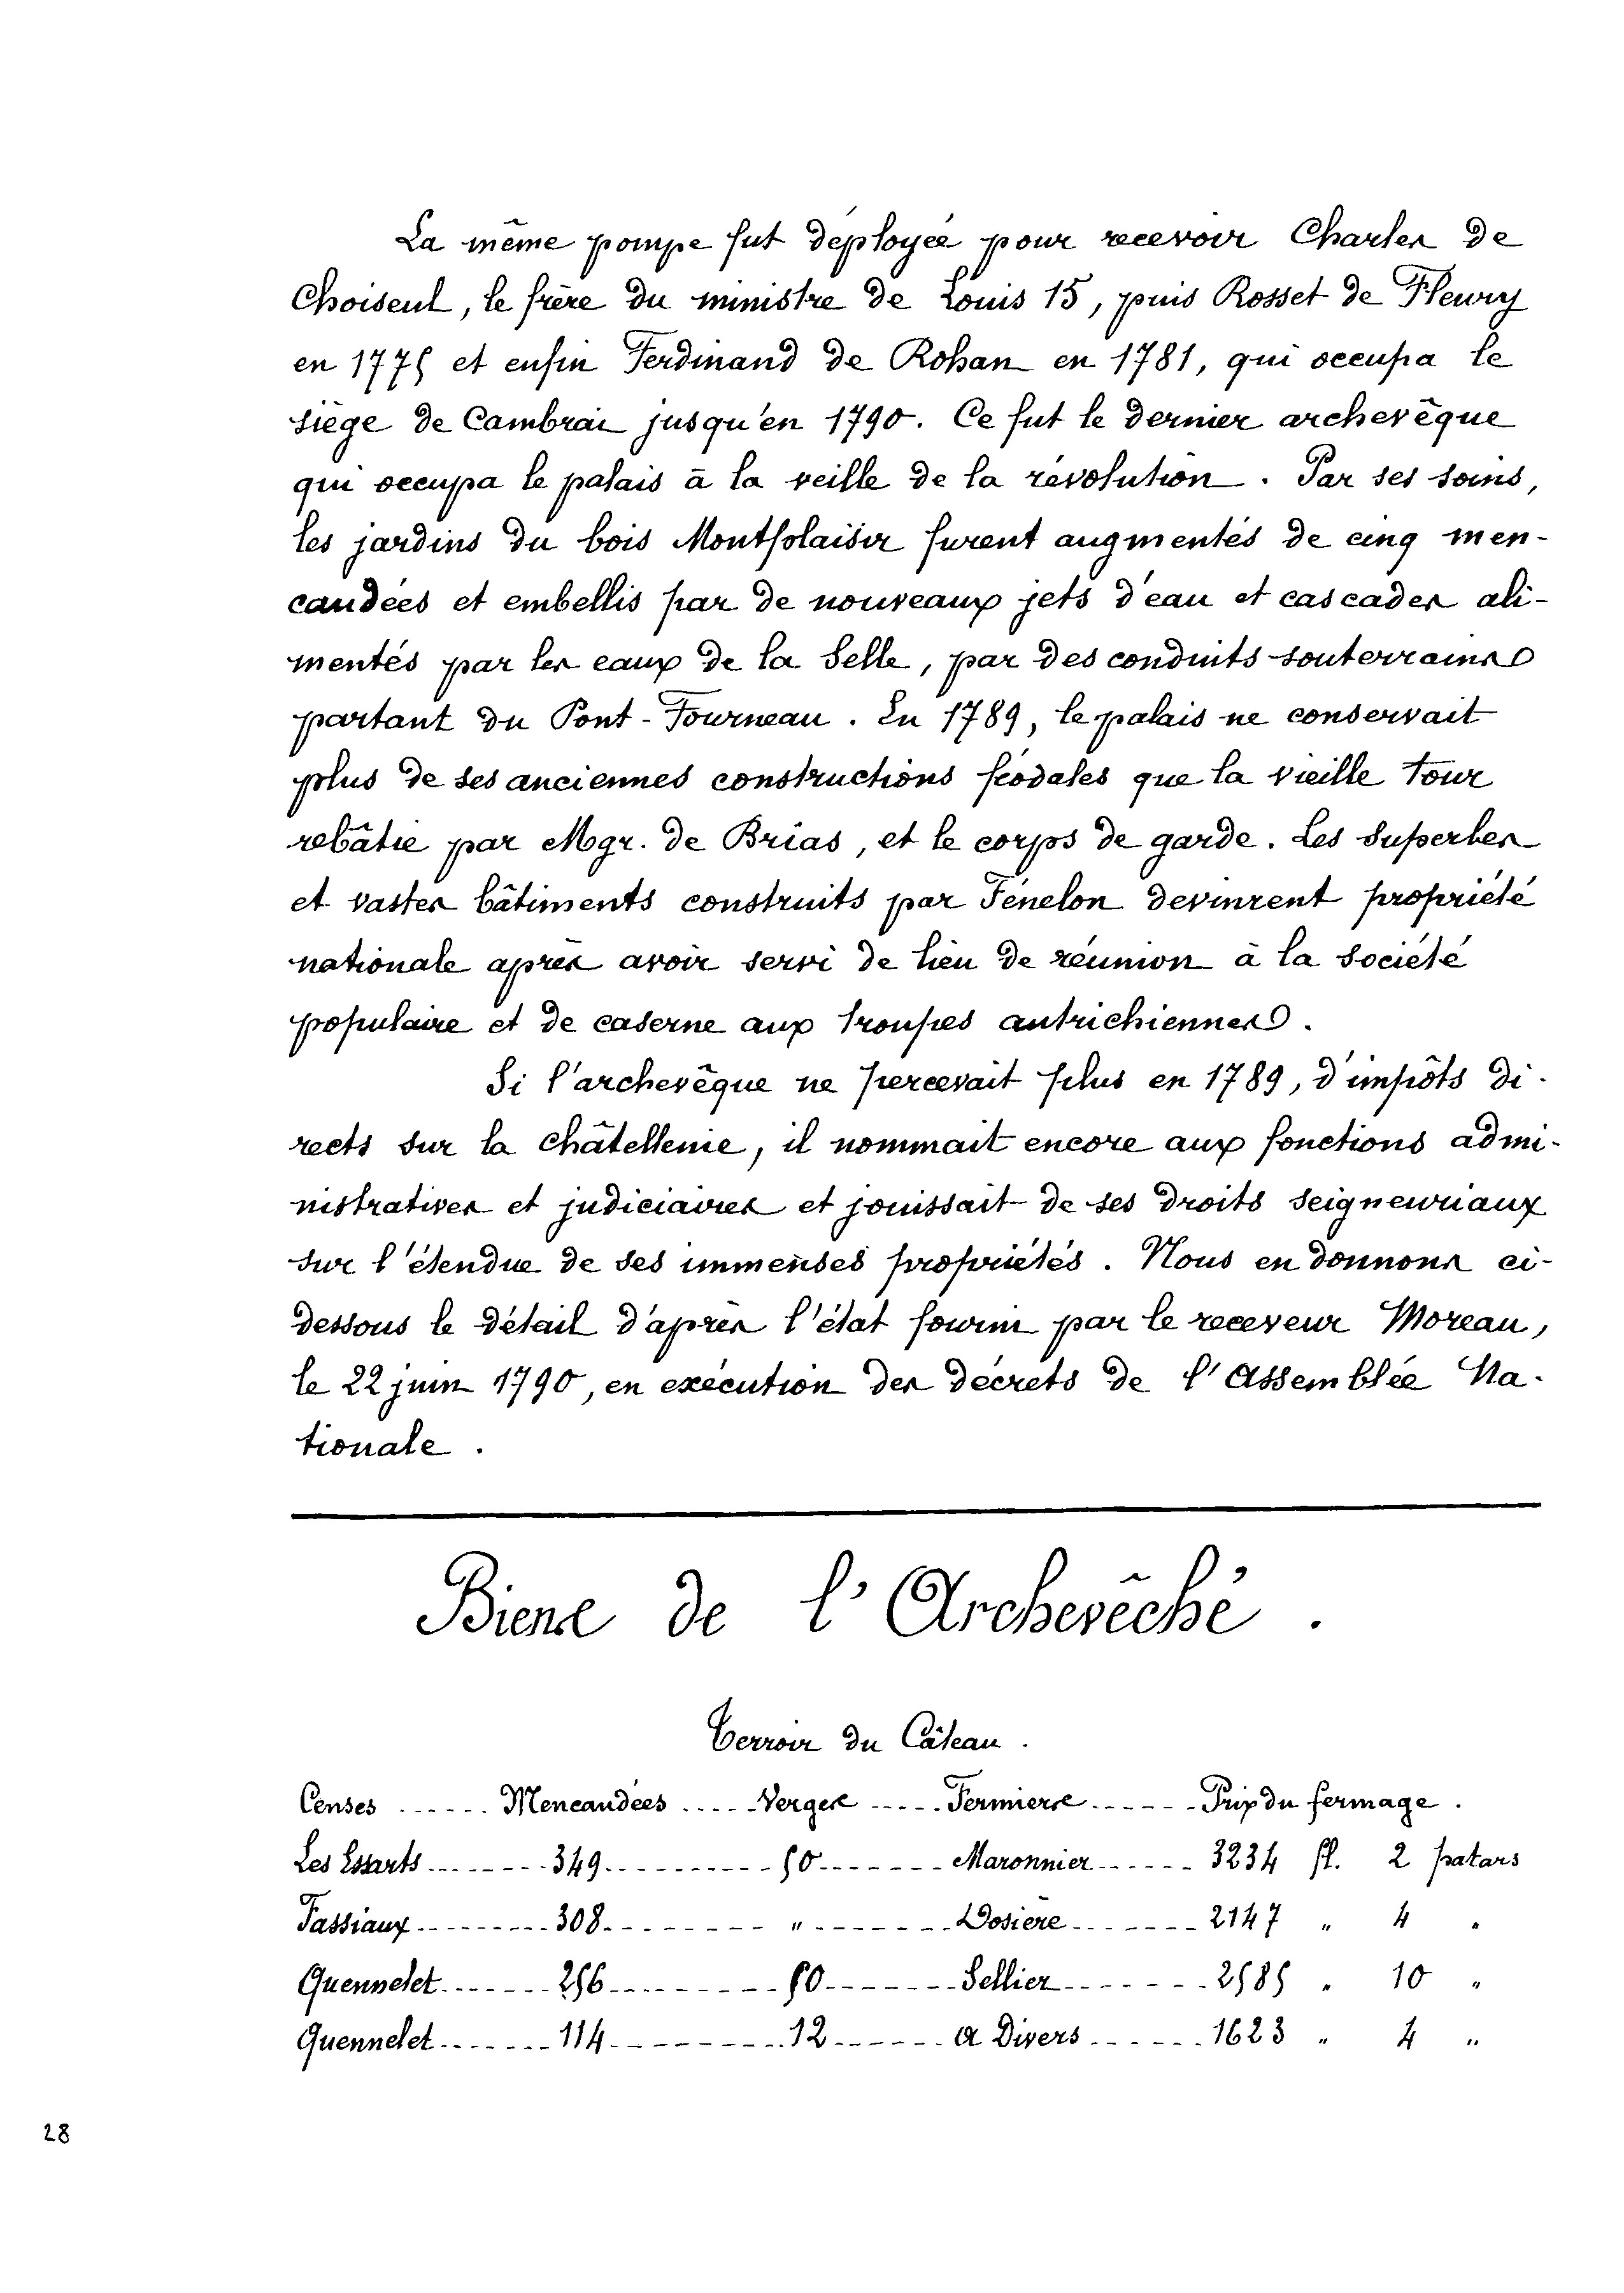 La même pompe fut déployée pour recevoir Charles de
Choiseul, le frère du ministre de Louis 15, puis Rosset de Fleury
en 1775 et enfin Ferdinand de Rohan en 1781, qui occupa le
siège de Cambrai jusqu'en 1790. Ce fut le dernier archevêque
qui occupa le palais à la veille de la révolution. Par ses soins,
les jardins du bois Montplaisir furent augmentés de cinq men-
caudées et embellis par de nouveaux jets d'eau et cascades ali-
mentés par les eaux de la Selle, par des conduits souterrains
partant du Pont-Fourneau. En 1789, le palais ne conservait
plus de ses anciennes constructions féodales que la vieille tour
rebâtie par Mgr. de Brias, et le corps de garde. Les superbes
et vastes bâtiments construits par Fénelon devinrent propriété
nationale après avoir servi de lieu de réunion à la société
populaire et de caserne aux troupes autrichiennes.
Si l'archevêque ne percevait plus en 1789, d'impôts di-
rects sur la châtellenie, il nommait encore aux fonctions admi-
nistratives et judiciaires et jouissait de ses droits seigneuriaux
sur l'étendue de ses immenses propriétés. Nous en donnons ci-
dessous le détail d'après l'état fourni par le receveur Moreau,
le 22 juin 1790, en exécution des décrets de l'Assemblée Na-
tionale.
Biens de l'Archevêché.
Terroir du Câteau.
Censes ...... Mencaudées ..... Verger ..... Fermiers ...... Prix du fermage.
Les Essarts ........ 349 .......... 50 ....... Maronnier ...... 3234 fl. 2 patars
Fassiaux ......... 308 ......... " ....... Dosière ....... 2147 " 4 "
Quennelet ....... 256 ......... 50 ....... Sellier ....... 2585 " 10 "
Quennelet ....... 114 ......... 12 ...... A Divers ...... 1623 " 4 "
28